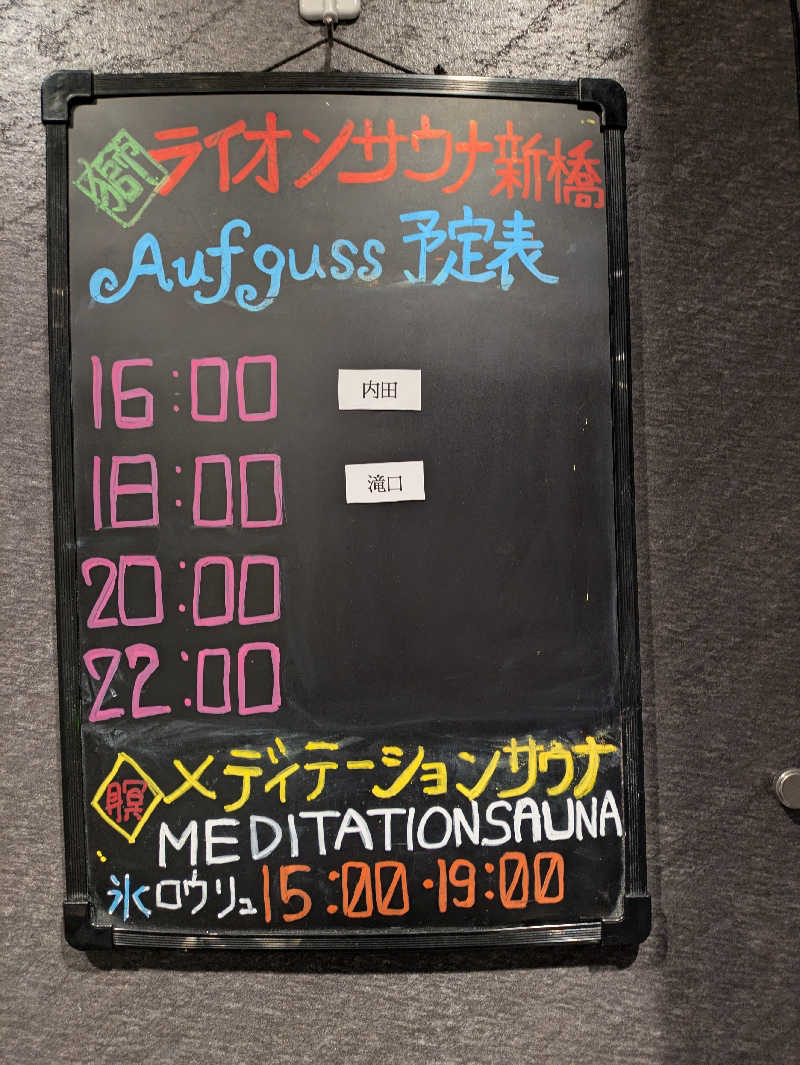 獅 ライオンサウナ新橋
Aufguss 予定表
16:00 内田
18:00 滝口
20:00
22:00
瞑 メディテーションサウナ
MEDITATIONSAUNA
氷ロウリュ 15:00・19:00